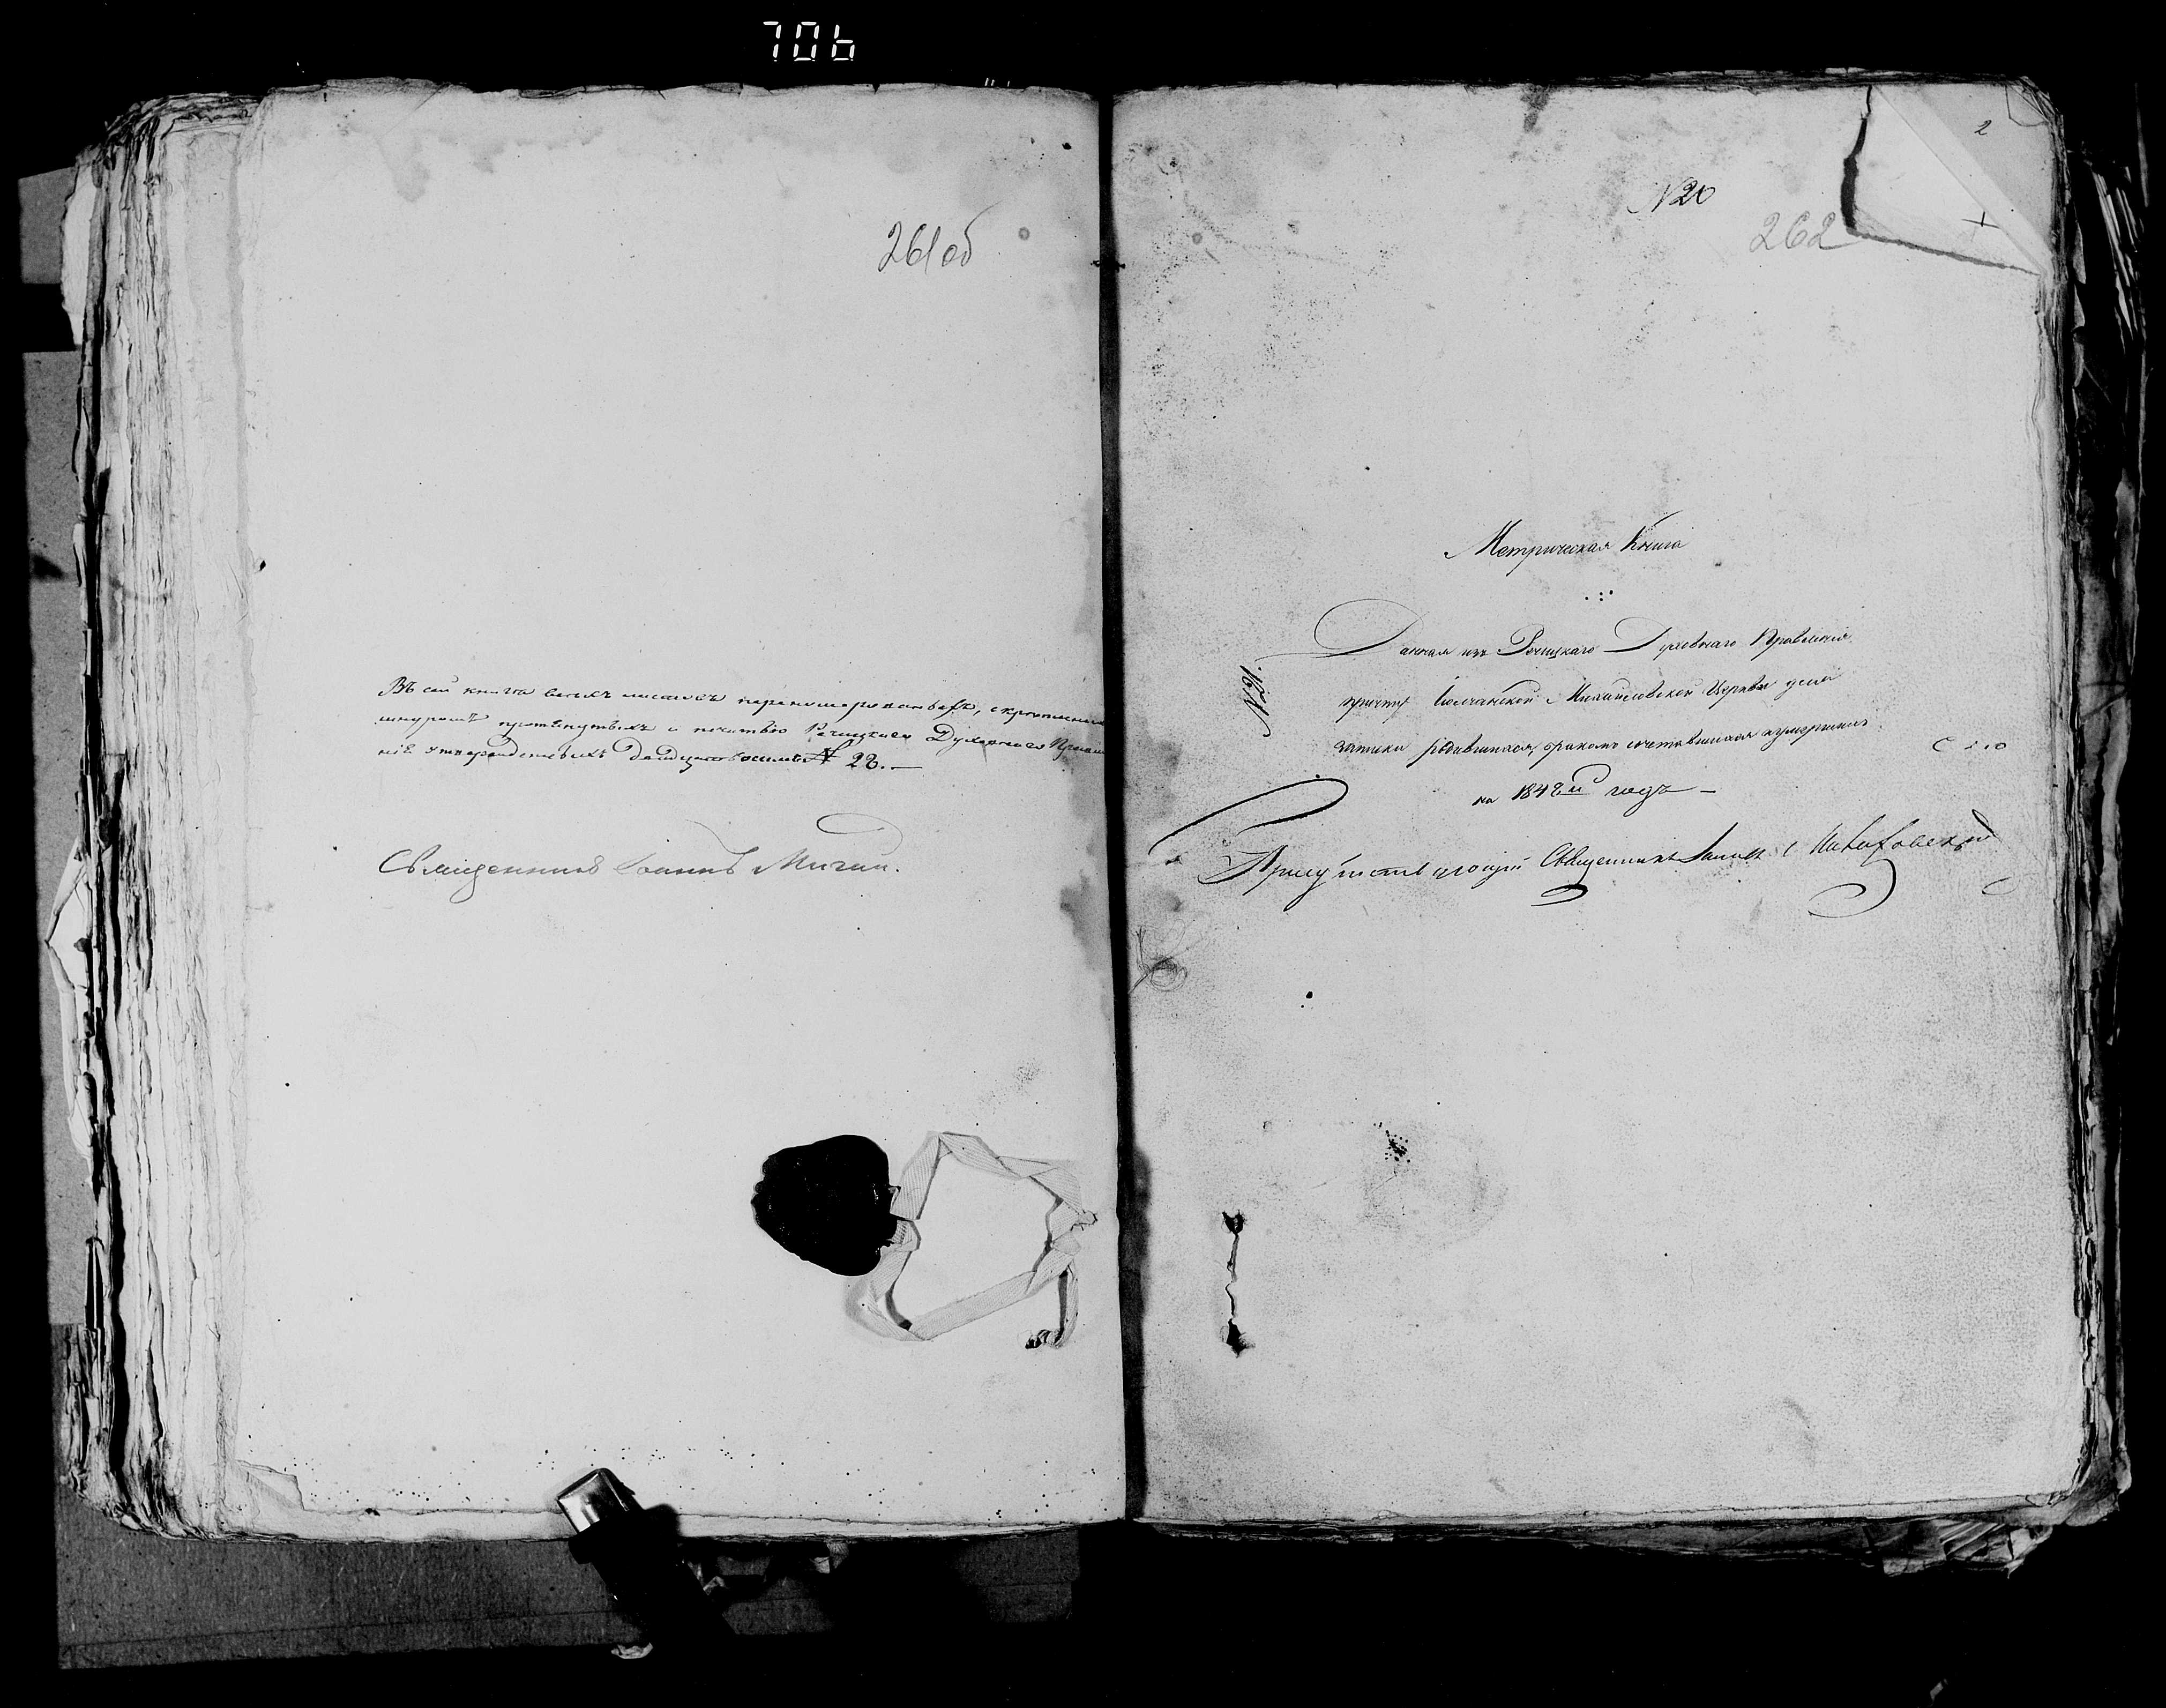 706
261об
Въ сей книга всихъ листовъ перенумерованыхъ, скрепленныхъ
шнуромъ протянутыхъ и печатью Речицкаго Духовнаго Правле
нія утвержденныхъ двадцать восимь № 28.—
Священникъ Іоаннъ
2
N20
262
Метрическая Книга
Данная изъ Речицкаго Духовнаго Правленія
причту Михайловской Церкви для
записки родившихся, бракомъ сочетавшихся и умершихъ
на 1848й годъ —
Присутствующій Священникъ